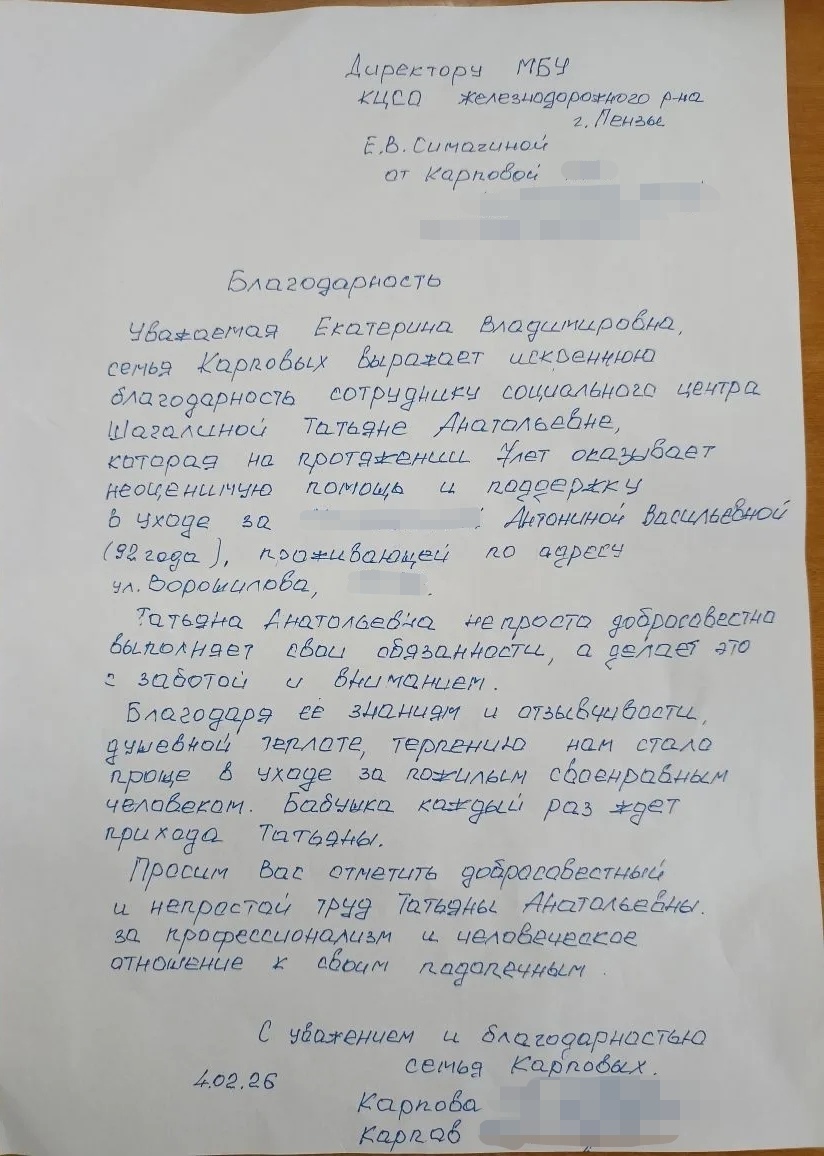 Директору МБУ
КЦСО железнодорожного р-на
г. Пензы
Е.В. Симагиной
от Карповой
Благодарность
Уважаемая Екатерина Владимировна,
семья Карповых выражает искреннюю
благодарность сотруднику социального центра
Шагалиной Татьяне Анатольевне,
которая на протяжении 7лет оказывает
неоценимую помощь и поддержку
в уходе за Антониной Васильевной
(92 года), проживающей по адресу
ул. Ворошилова,
Татьяна Анатольевна не просто добросовестно
выполняет свои обязанности, а делает это
с заботой и вниманием.
Благодаря её знаниям и отзывчивости,
душевной теплоте, терпению нам стало
проще в уходе за пожилым своенравным
человеком. Бабушка каждый раз ждет
прихода Татьяны.
Просим Вас отметить добросовестный
и непростой труд Татьяны Анатольевны.
за профессионализм и человеческое
отношение к своим подопечным.
С уважением и благодарностью
семья Карповых.
4.02.26
Карпова
Карпов